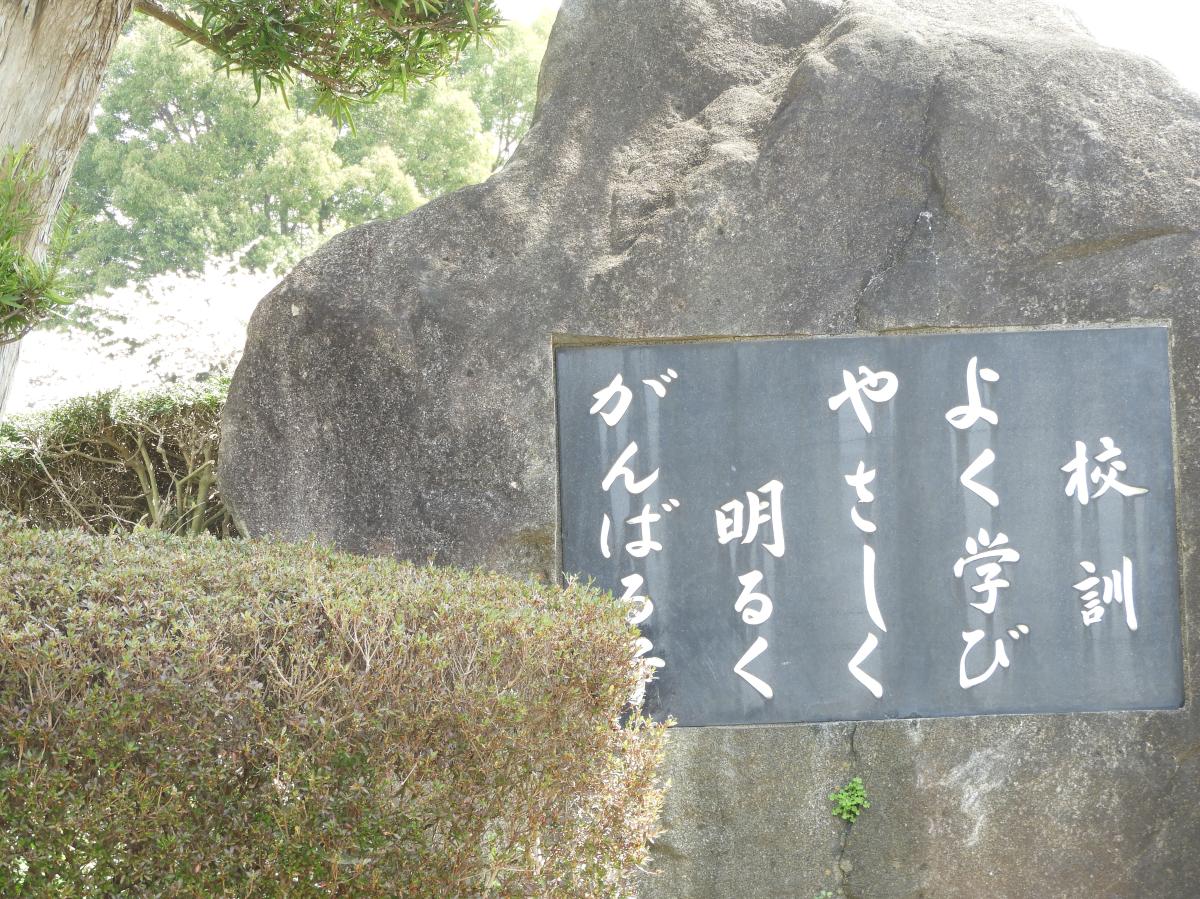 校訓
よく学び
やさしく
明るく
がんばる子